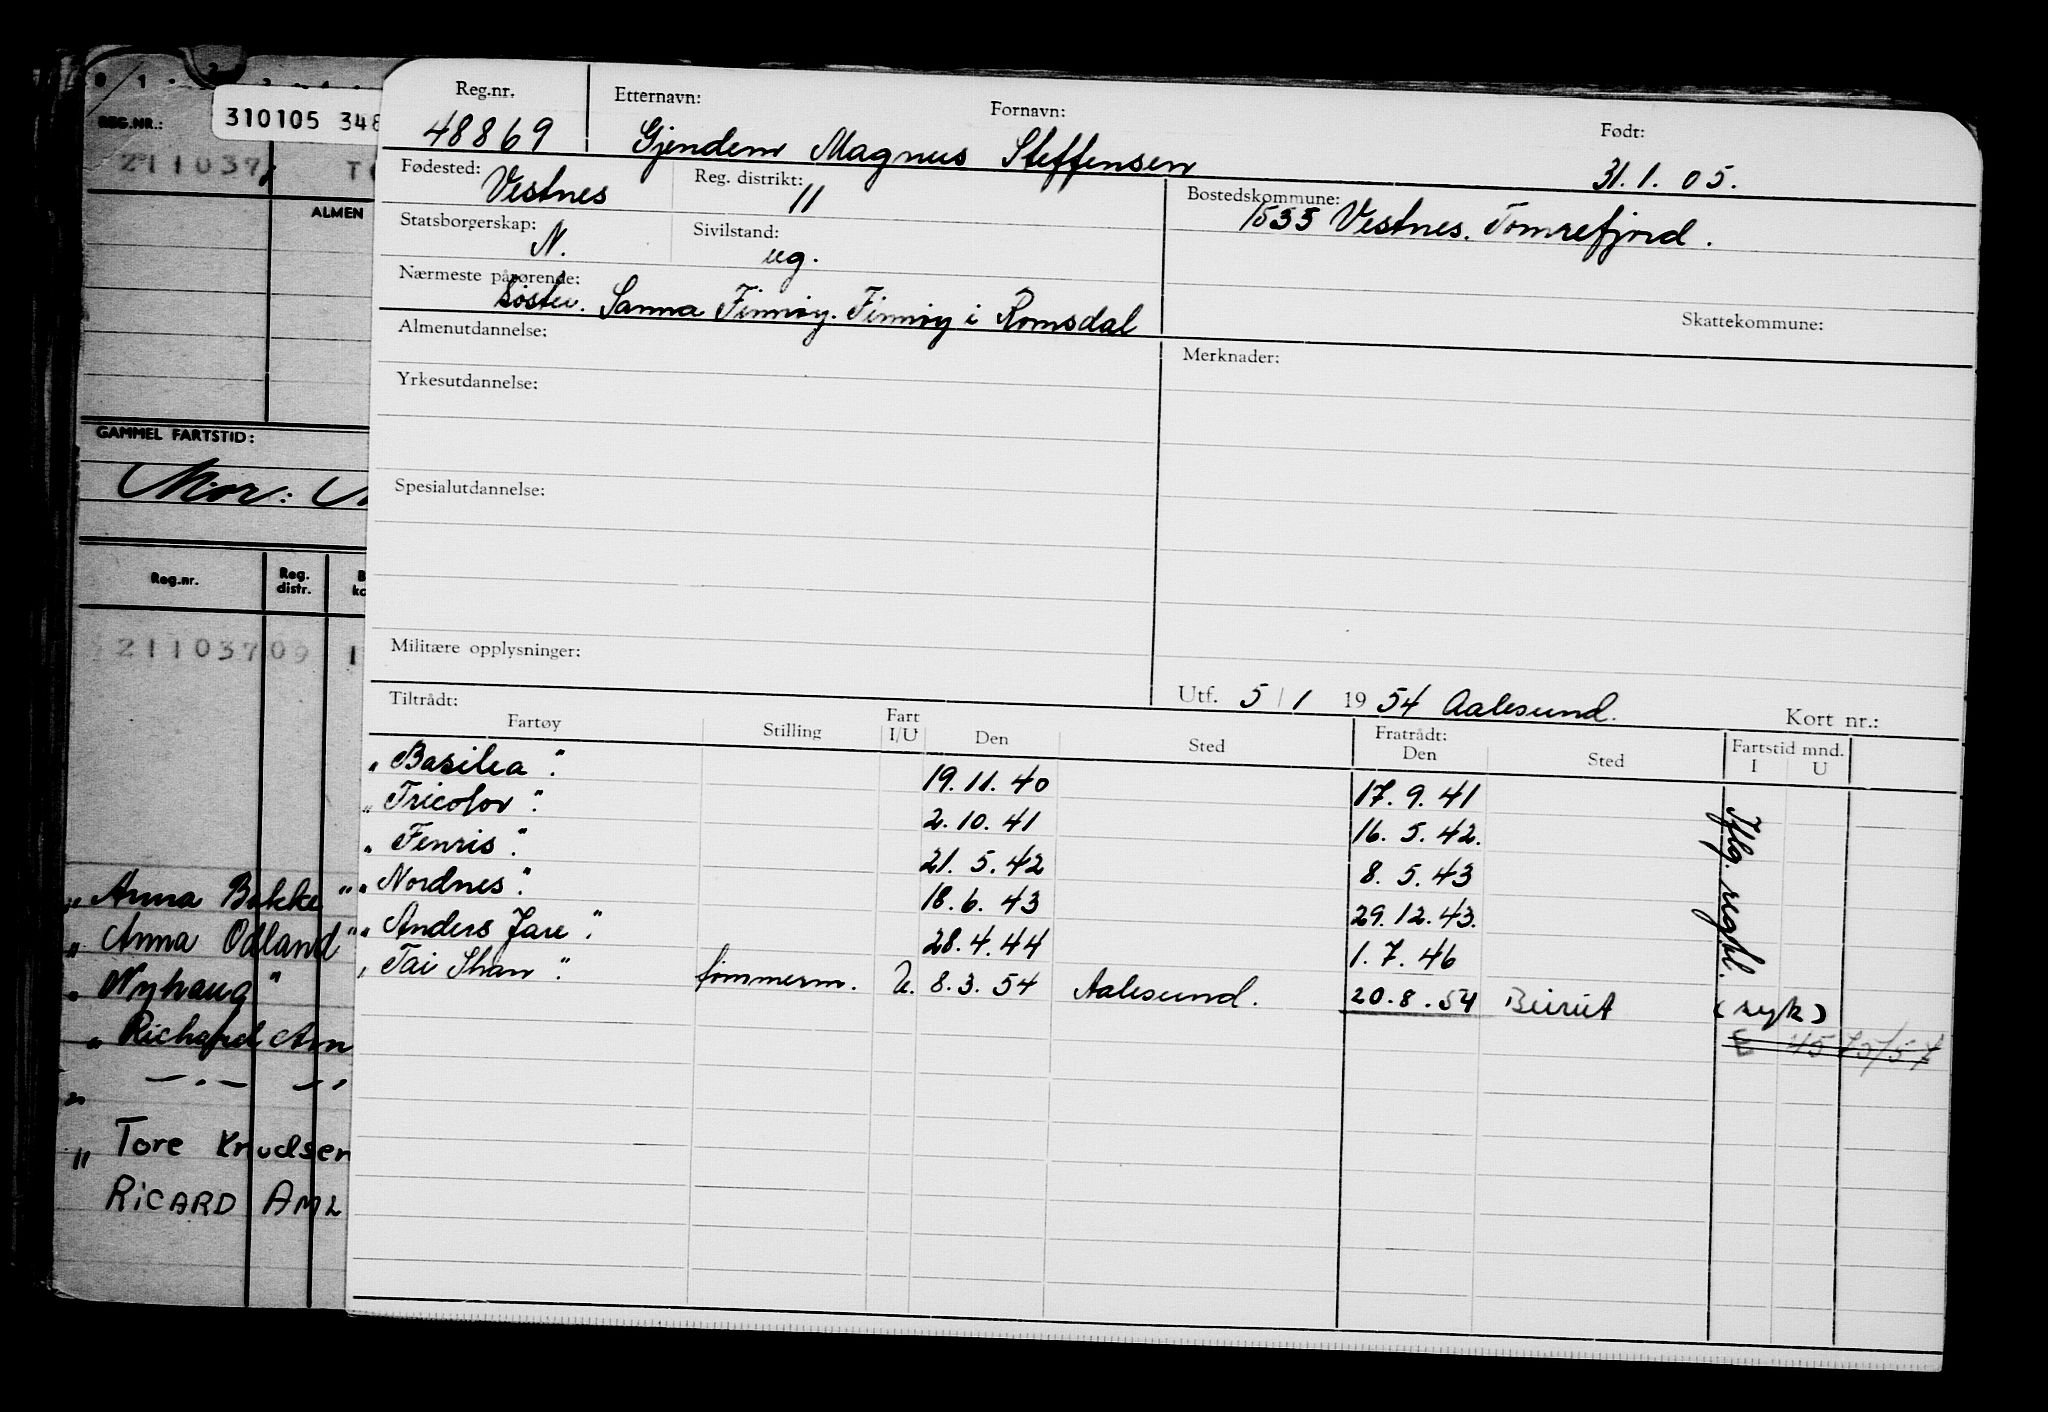 310105 348
REG.NR.:
211037
ALMEN
GAMMEL FARTSTID:
Mor:
Reg.nr. Reg. distr.
21103709
„ Anna Bakke "
„ Anna Odland "
„ Nyhaug "
„ Richard
„ Tore Knudsen
RICARD AML
Reg.nr. Etternavn: Fornavn: Født:
48869 Gjendem Magnus Steffensen 31.1.05.
Fødested: Vestnes Reg. distrikt: 11 Bostedskommune: 1535 Vestnes. Tomrefjord.
Statsborgerskap: N. Sivilstand: ug.
Nærmeste pårørende: Søster. Sanna Finnøy. Finnøy i Romsdal
Skattekommune:
Almenutdannelse: Merknader:
Yrkesutdannelse:
Spesialutdannelse:
Militære opplysninger:
Utf. 5/1 1954 Aalesund. Kort nr.:
Tiltrådt: Fratrådt: Fartstid mnd.
Fartøy Stilling Fart I/U Den Sted Den Sted I U
„ Basilea ". 19.11.40 17.9.41
„ Tricolor ". 2.10.41 16.5.42.
„ Fenris ". 21.5.42 8.5.43
„ Nordnes ". 18.6.43 29.12.43.
„ Anders Jare ". 28.4.44 1.7.46
„ Tai Shan ". tømmerm. U. 8.3.54 Aalesund. 20.8.54 Beirut (syk)
Iflg. regkl.